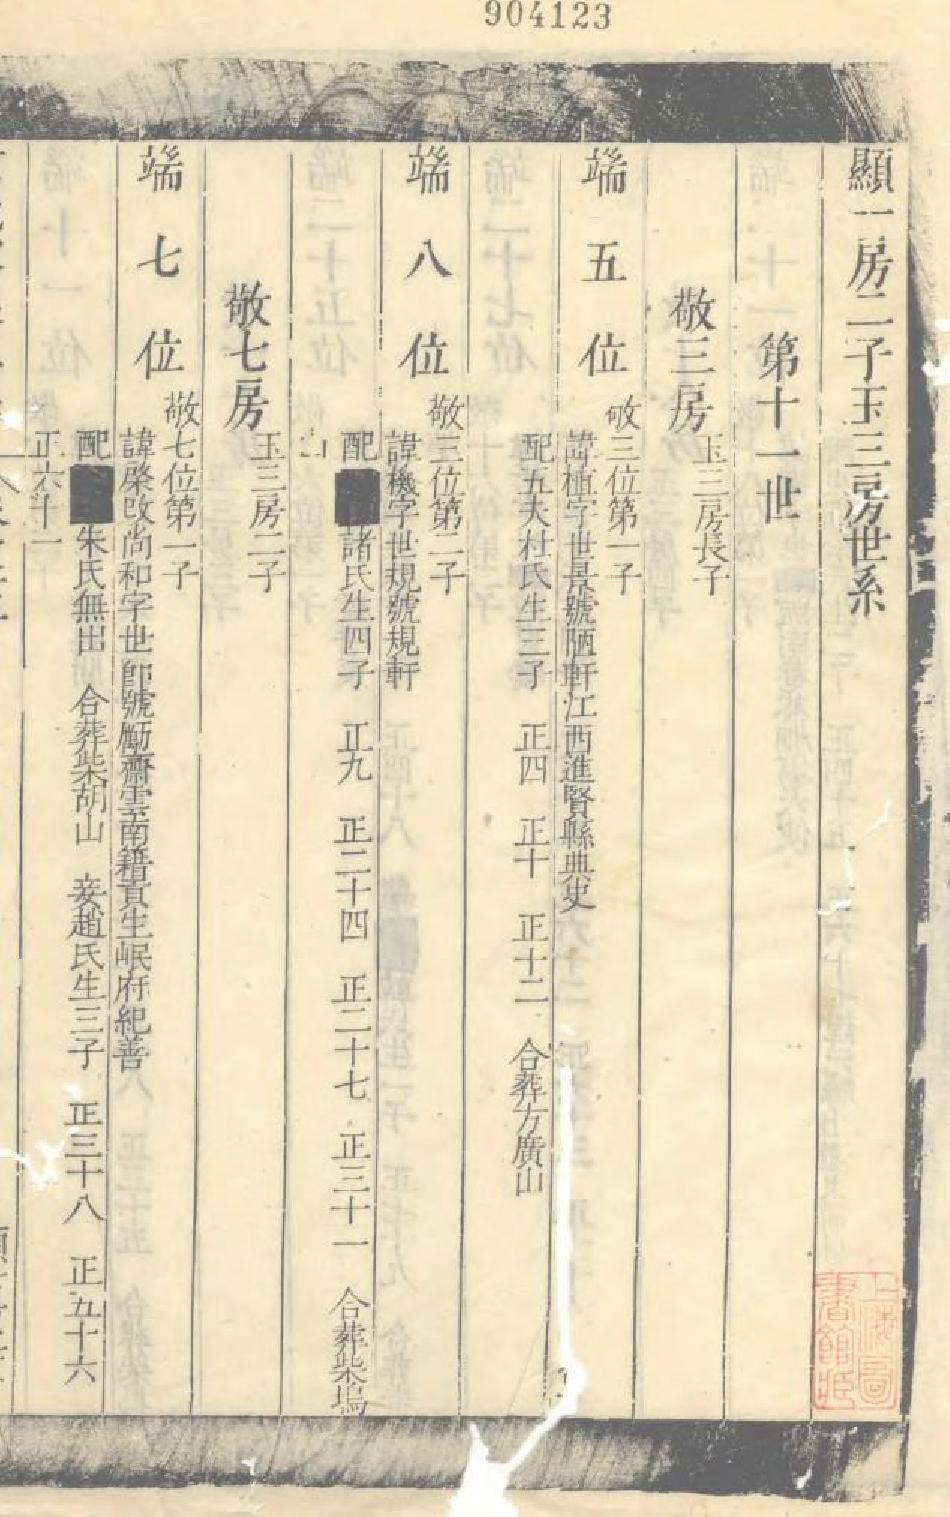 904123
顯一房二子玉三房世系
第十一世
敬三房
玉三房長子
端五位
敬三位第一子
諱植字世景號陋軒江西進賢縣典史
配五夫杜氏生三子 正四 正十 正十二 合葬方廣山
端八位
敬三位第二子
諱機字世規號規軒
配諸氏生四子 正九 正二十四 正二十七 正三十一 合葬柴塢
山
敬七房
玉三房二子
端七位
敬七位第一子
諱棨改尚和字世卹號勵齋雲南籍貢生岷府紀善
配朱氏無出 合葬柴胡山 妾趙氏生三子 正三十八 正五十六
正六十一
上海圖書館